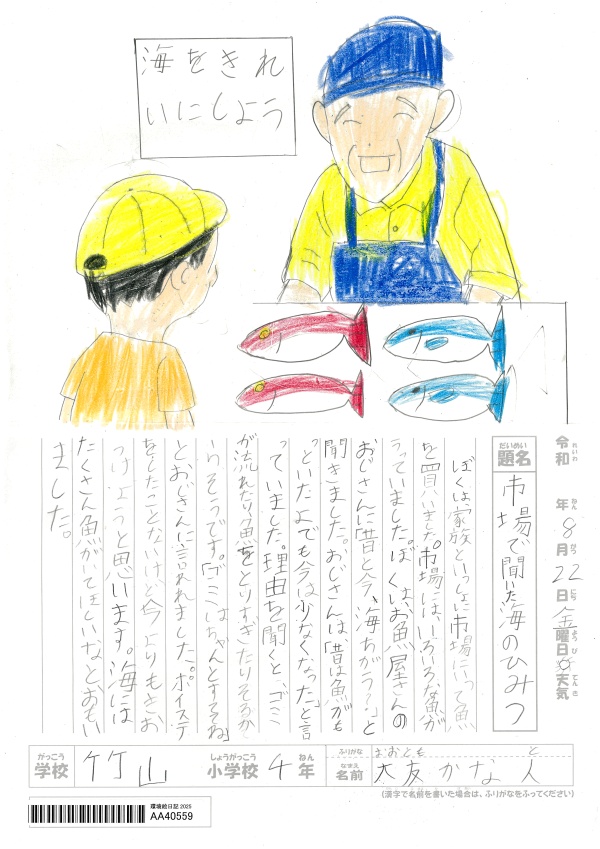 海をきれ
いにしよう
令和 れいわ 年 ねん 8月 がつ 22日 にち 金曜日 ようび 天気 てんき
題名 だいめい 市場で聞いた海のひみつ
ぼくは家族といっしょに市場にいって魚
を買いいきた。市場にはいろいろな魚が
うっていました。ぼくはお魚屋さんの
おじさんに「昔と今、海ちがう?」と
聞きました。おじさんは「昔は魚がも
っといたよでも今は少なくなった」と言
っていました。理由を聞くと、ゴミ
が流れたり魚をとりすぎたりそるから
らそうです。「ゴミはちゃんとすてるね」
とおじさんに言われました。ポイステ
をしたことないけど今よりもきお
つけようと思います。海には
たくさん魚がいてほしいなとおもい
ました。
学校 がっこう 竹山 小学校 しょうがっこう 4年 ねん
ふりがな おおとも と
名前 なまえ 大友かな人
(漢字で名前を書いた場合は、ふりがなをふってください)
環境絵日記2025
AA40559